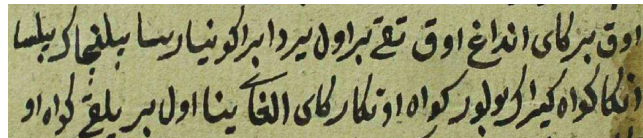 اوق بیرکای انداغ اوق تقی بر اول یردا برا کونیارسا بیلغجاک بیلسا
انکا کواه کیراک بولور کواه اوتکارکای الغای ینا اول بر یلقی کواه او